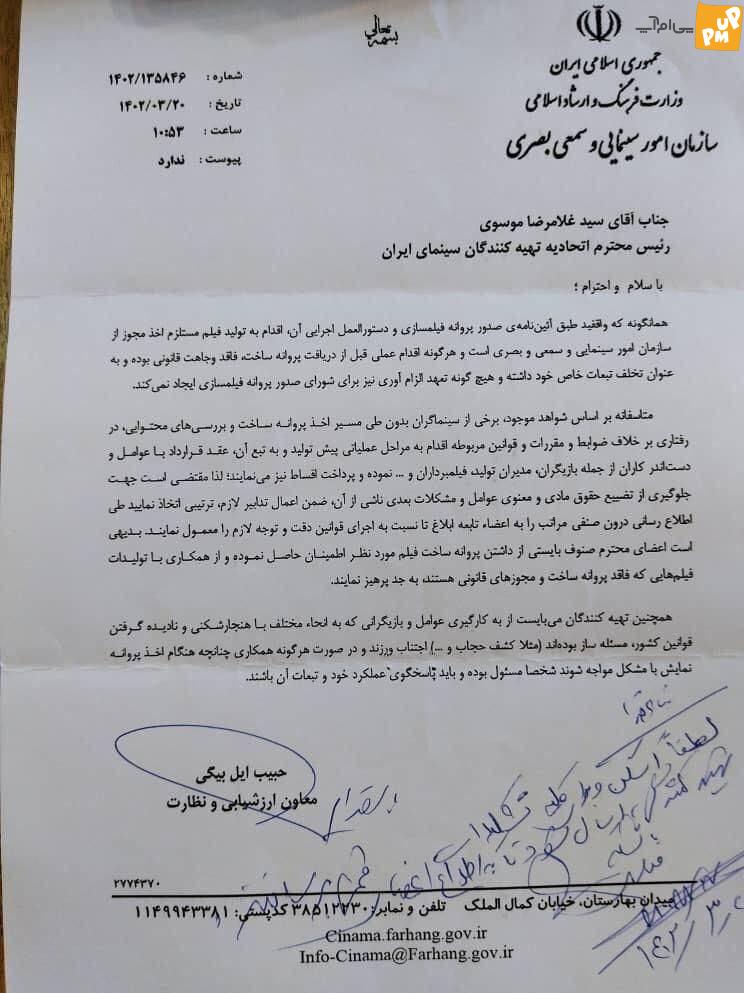 پی‌ام‌آپ
PMUP
بسمه تعالی
جمهوری اسلامی ایران
وزارت فرهنگ و ارشاد اسلامی
سازمان امور سینمایی و سمعی بصری
شماره : ۱۴۰۲/۱۳۵۸۴۶
تاریخ : ۱۴۰۲/۰۳/۲۰
ساعت : ۱۰:۵۳
پیوست : ندارد
جناب آقای سید غلامرضا موسوی
رئیس محترم اتحادیه تهیه کنندگان سینمای ایران
با سلام و احترام ؛
همانگونه که واقفید طبق آئین‌نامه‌ی صدور پروانه فیلمسازی و دستورالعمل اجرایی آن، اقدام به تولید فیلم مستلزم اخذ مجوز از
سازمان امور سینمایی و سمعی و بصری است و هرگونه اقدام عملی قبل از دریافت پروانه ساخت، فاقد وجاهت قانونی بوده و به
عنوان تخلف تبعات خاص خود داشته و هیچ گونه تعهد الزام آوری نیز برای شورای صدور پروانه فیلمسازی ایجاد نمی‌کند.
متاسفانه بر اساس شواهد موجود، برخی از سینماگران بدون طی مسیر اخذ پروانه ساخت و بررسی‌های محتوایی، در
رفتاری بر خلاف ضوابط و مقررات و قوانین مربوطه اقدام به مراحل عملیاتی پیش تولید و به تبع آن، عقد قرارداد با عوامل و
دست‌اندر کاران از جمله بازیگران، مدیران تولید، فیلمبرداران و ... نموده و پرداخت اقساط نیز می‌نمایند؛ لذا مقتضی است جهت
جلوگیری از تضییع حقوق مادی و معنوی عوامل و مشکلات بعدی ناشی از آن، ضمن اعمال تدابیر لازم، ترتیبی اتخاذ نمایید طی
اطلاع رسانی درون صنفی مراتب را به اعضاء تابعه ابلاغ تا نسبت به اجرای قوانین دقت و توجه لازم را معمول نمایند. بدیهی
است اعضای محترم صنوف بایستی از داشتن پروانه ساخت فیلم مورد نظر اطمینان حاصل نموده و از همکاری با تولیدات
فیلم‌هایی که فاقد پروانه ساخت و مجوزهای قانونی هستند، به جد پرهیز نمایند.
همچنین تهیه کنندگان می‌بایست از به کارگیری عوامل و بازیگرانی که به انحاء مختلف با هنجارشکنی و نادیده گرفتن
قوانین کشور، مسئله ساز بوده‌اند (مثلا کشف حجاب و ...) اجتناب ورزند و در صورت هرگونه همکاری چنانچه هنگام اخذ پروانه
نمایش با مشکل مواجه شوند شخصا مسئول بوده و باید پاسخگوی عملکرد خود و تبعات آن باشند.
حبیب ایل بیگی
معاون ارزشیابی و نظارت
لطفاً اسکن و برای کلیه
تهیه کنندگان ارسال شود تا به اطلاع اعضا
۲۷۷۴۳۷۰
میدان بهارستان، خیابان کمال الملک تلفن و نمابر: ۳۸۵۱۲۲۳۰ کدپستی: ۱۱۴۹۹۴۳۳۸۱
Cinama.farhang.gov.ir
Info-Cinama@Farhang.gov.ir